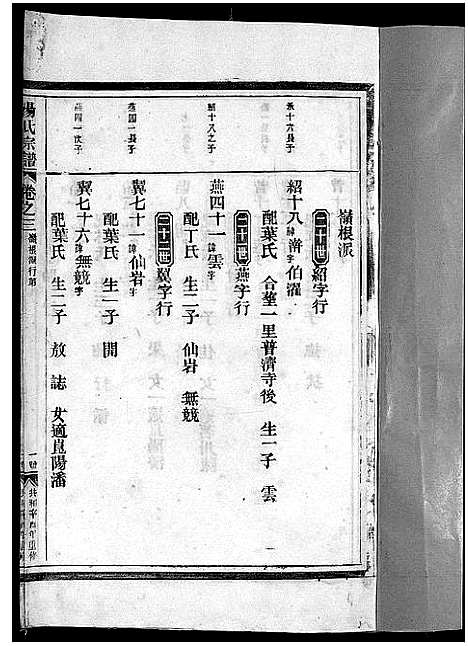 嶺根派
二十世 紹字行
承十六長子
紹十八 諱 伯濯
配葉氏 合塟一里普濟寺後 生一子 雲
二十一世 燕字行
紹十八之子
燕四十一 諱雲字
配丁氏 生二子 仙岩 無競
二十二世 翼字行
燕四一長子
翼七十一 諱仙岩字
配葉氏 生一子 開
燕四一次子
翼七十六 諱無競字
配葉氏 生二子 放 誌 女適崑陽潘
楊氏宗譜 卷之三 嶺根派行第